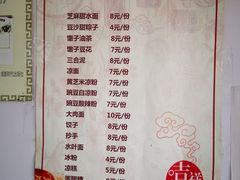 芝麻甜水面 8元/份
豆沙甜粽子 4元/份
馓子油茶 8元/份
馓子豆花 7元/份
三合泥 8元/份
凉面 7元/份
黄芝米凉粉 7元/份
豌豆白凉粉 7元/份
豌豆酸辣粉 7元/份
大肉面 10元/份
饺子 8元/份
抄手 8元/份
水叶面 8元/份
冰粉 4元/份
凉糕 5元/份
吉祥